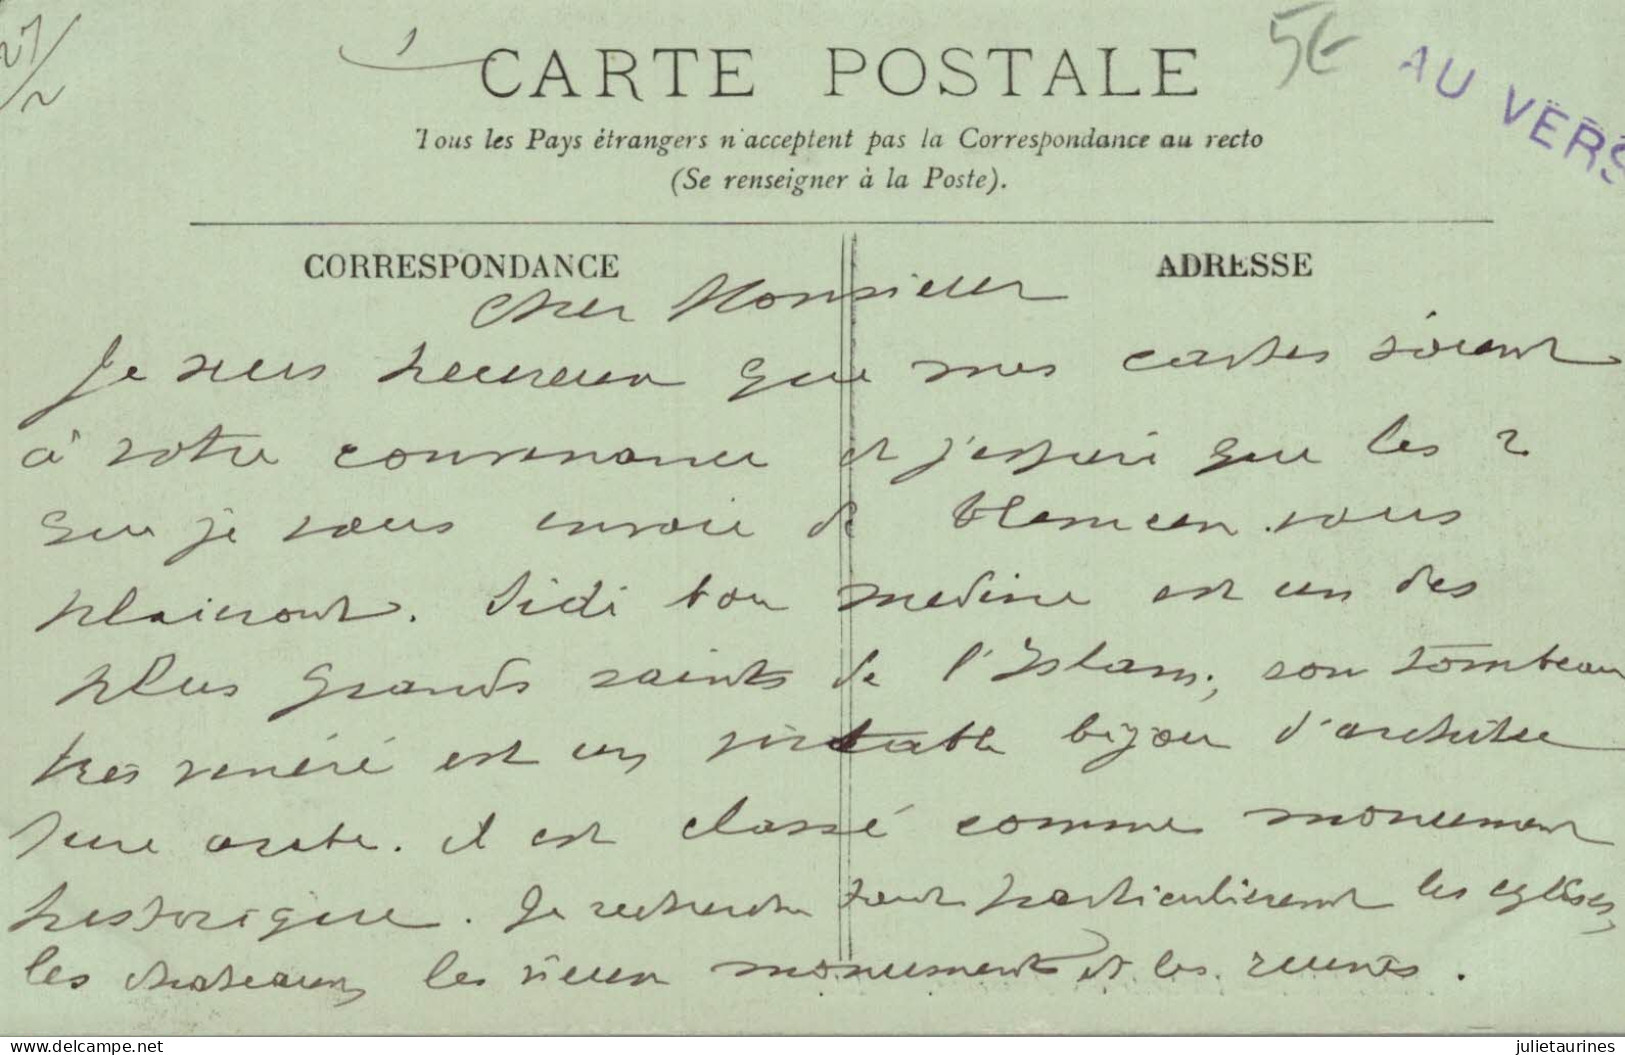 27/2
1
CARTE POSTALE
5€
AU VERS
Tous les Pays étrangers n'acceptent pas la Correspondance au recto
(Se renseigner à la Poste).
CORRESPONDANCE
ADRESSE
Cher Monsieur
Je suis heureux que mes cartes soient
à votre convenance et j'espère que les 2
que je vous envoie de Tlemcen vous
plairont. Sidi bou medine est un des
plus grands saints de l'Islam, son tombeau
très vénéré est un véritable bijou d'architec
ture arabe. il est classé comme monument
historique. Je recherche tout particulièrement les eglises,
les chateaux, les vieux monuments et les ruines.
www.delcampe.net
julietaurines